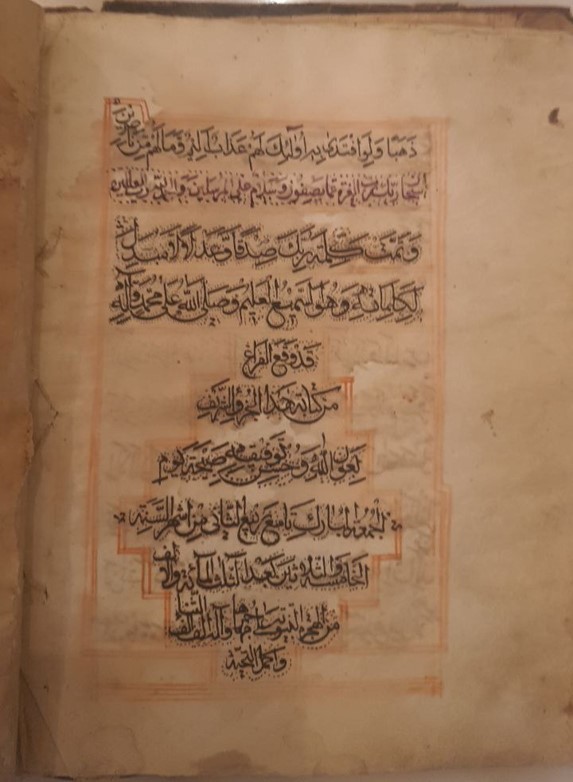 ذهبا ولو افتدى به أولئك لهم عذاب أليم وما لهم من ناصرين
سبحان ربك رب العزة عما يصفون وسلام على المرسلين والحمد لله رب العالمين
وتمت كلمة ربك صدقا وعدلا لا مبدل
لكلماته وهو السميع العليم وصلى الله على محمد وآله
قد وقع الفراغ
من كتابة هذا الجزو الشريف
بعون الله وحسن توفيقه صبيحة يوم
الجمعة المبارك تاسع ربيع الثاني من أشهر السنة
الخامسة والثلاثين بعد الثلث المائة والألف
من الهجرة النبوية على مهاجرها وآله ألف ألف الثناء
وأكمل التحية